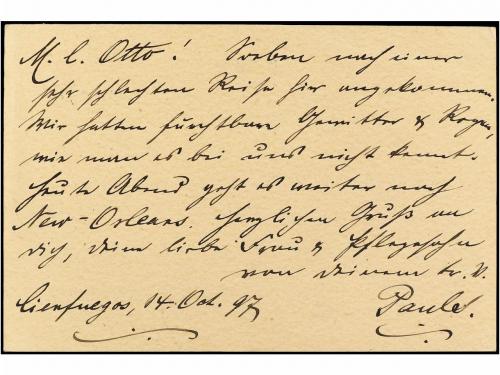 M. l. Otto! Soeben nach einer
sehr schlechten Reise hier angekommen.
Wir hatten furchtbare Gewitter & Regen,
wie man es bei uns nicht kennt.
Heute Abend geht es weiter nach
New-Orleans. Herzlichen Gruß an
dich, deine liebe Frau & Pflegesohn
von deinem tr. V.
Cienfuegos, 14. Oct. 97 Paul